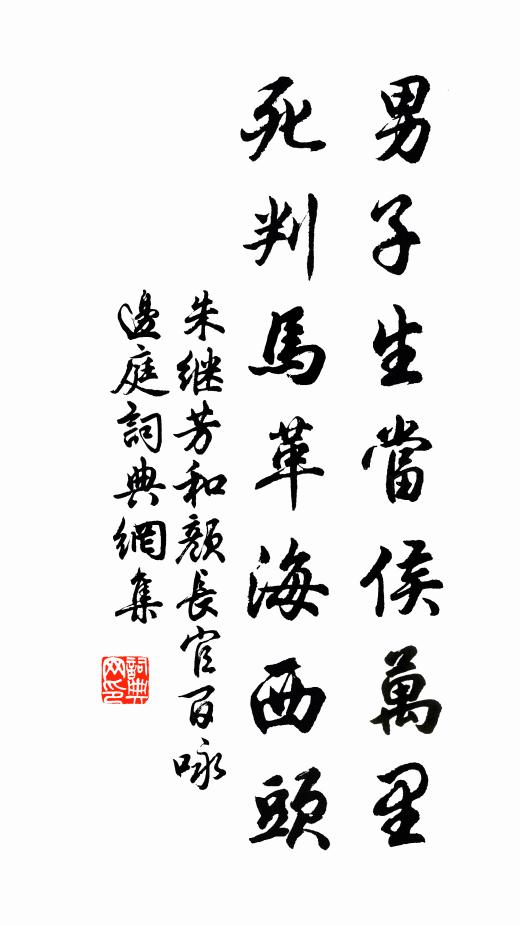 男子生當侯萬里
死判馬革海西頭
朱继芳和顏長官百咏
邊庭詞典網集
詞典網印